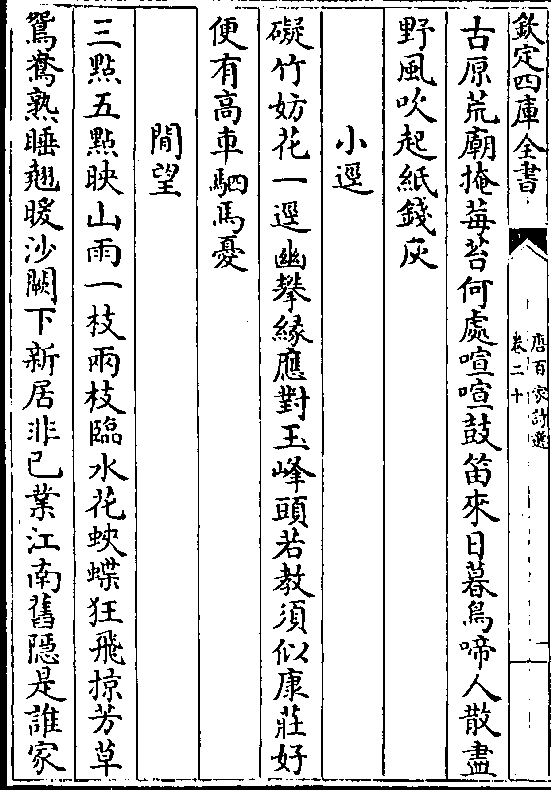 欽定四庫全書
唐百家詩選
卷二十
古原荒廟掩莓苔何處喧喧鼓笛來日暮鳥啼人散盡
野風吹起紙錢灰
小逕
礙竹妨花一逕幽攀緣應對玉峰頭若教須似康莊好
便有高車駟馬憂
閒望
三點五點映山雨一枝兩枝臨水花蛺蝶狂飛掠芳草
鴛鴦熟睡翹暖沙闕下新居非已業江南舊隱是誰家